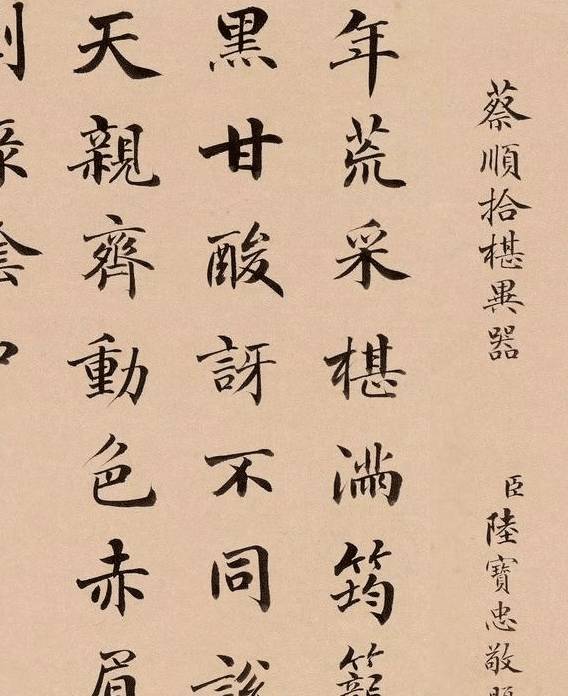 蔡順拾椹異器
臣陸寶忠敬
年荒采椹滿筠籠
黑甘酸訝不同說
天親齊動色赤眉